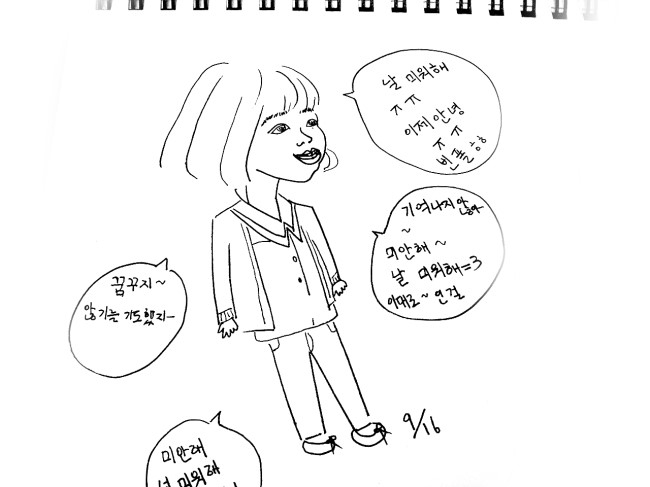 날 미워해
ㅠㅠ
이제 안녕
ㅠㅠ
기억나지 않아
~
미안해~
날 미워해=3
이대로~ 연결
꿈꾸지~
않기를 기도했지~
9/16
미안해
널 미워해